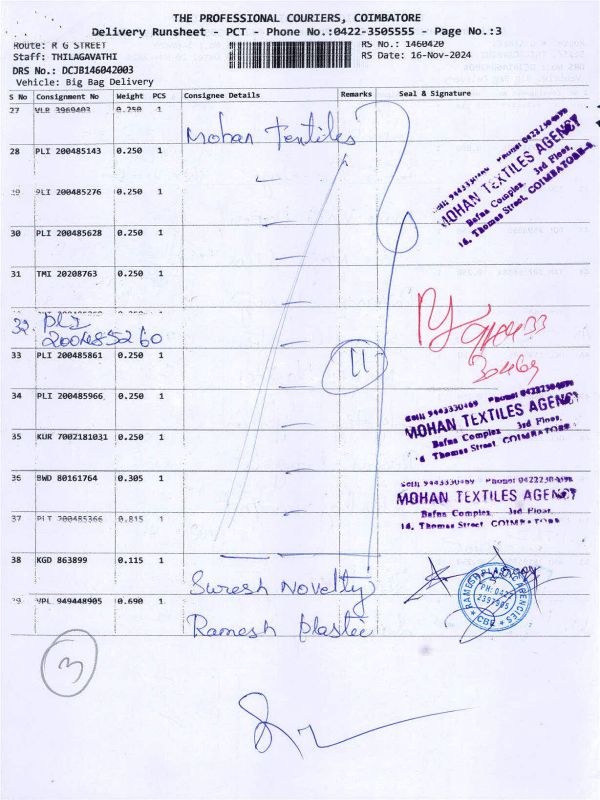 THE PROFESSIONAL COURIERS, COIMBATORE
Delivery Runsheet - PCT - Phone No.:0422-3505555 - Page No.:3
Route: R G STREET
RS No.: 1460420
Staff: THILAGAVATHI
RS Date: 16-Nov-2024
DRS No.: DCJB146042003
Vehicle: Big Bag Delivery
S No Consignment No Weight PCS Consignee Details Remarks Seal & Signature
27 VLR 3969403 0.250 1
Mohan Textiles
28 PLI 200485143 0.250 1
MOHAN TEXTILES AGENCY
Bafna Complex, 3rd Floor,
14, Thomas Street, COIMBATORE
PLI 200485276 0.250 1
30 PLI 200485628 0.250 1
31 TMI 20208763 0.250 1
32. PLI
200485260
33 PLI 200485861 0.250 1
11
34 PLI 200485966 0.250 1
MOHAN TEXTILES AGENCY
Bafna Complex 3rd Floor,
Thomas Street, COIMBATORE
35 KUR 7002181031 0.250 1
36 BWD 80161764 0.305 1
MOHAN TEXTILES AGENCY
Bafna Complex, 3rd Floor,
14, Thomas Street, COIMBATORE
37 PLI 200485366 0.815 1
38 KGD 863899 0.115 1
Suresh Novelty
RAMESH PLASTIC AGENCIES
PH: 0422
2397905
CBE
VPL 949448905 0.690 1
Ramesh Plastic
3